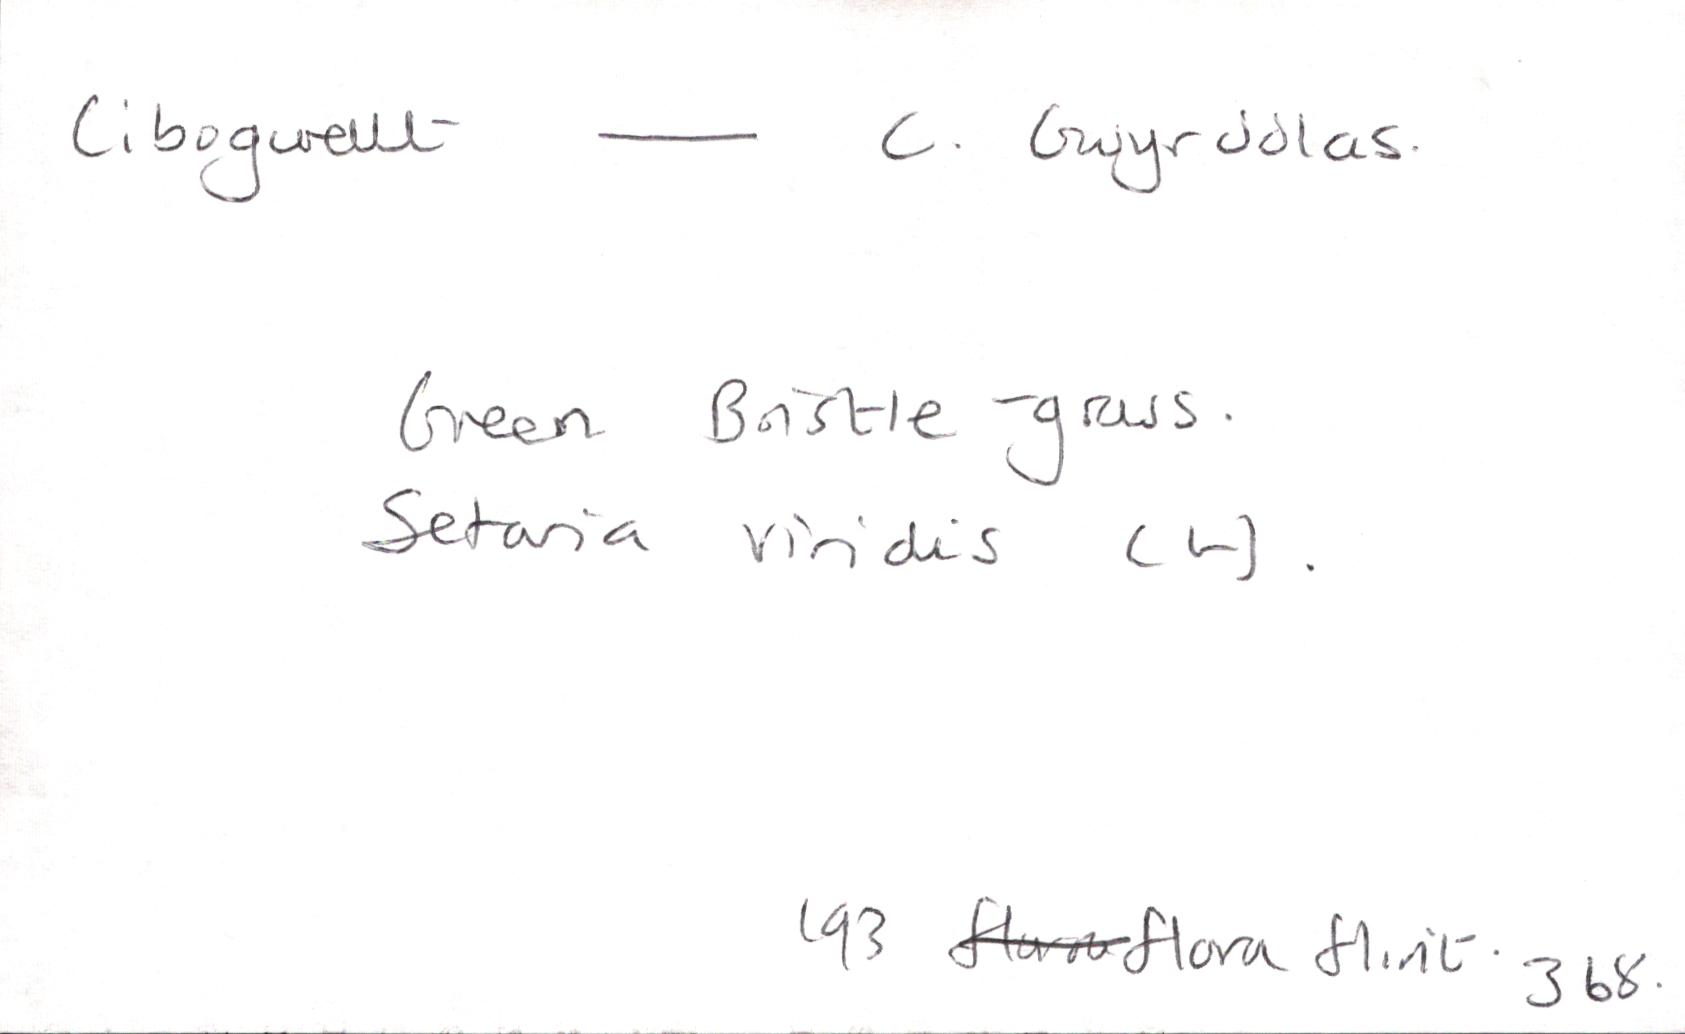 Cibogwellt — C. Gwyrddlas.
Green Bristle-grass.
Setaria viridis (L).
193 flora flora flint. 368.